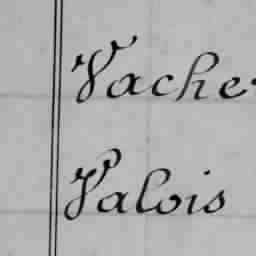 Vache
Valois